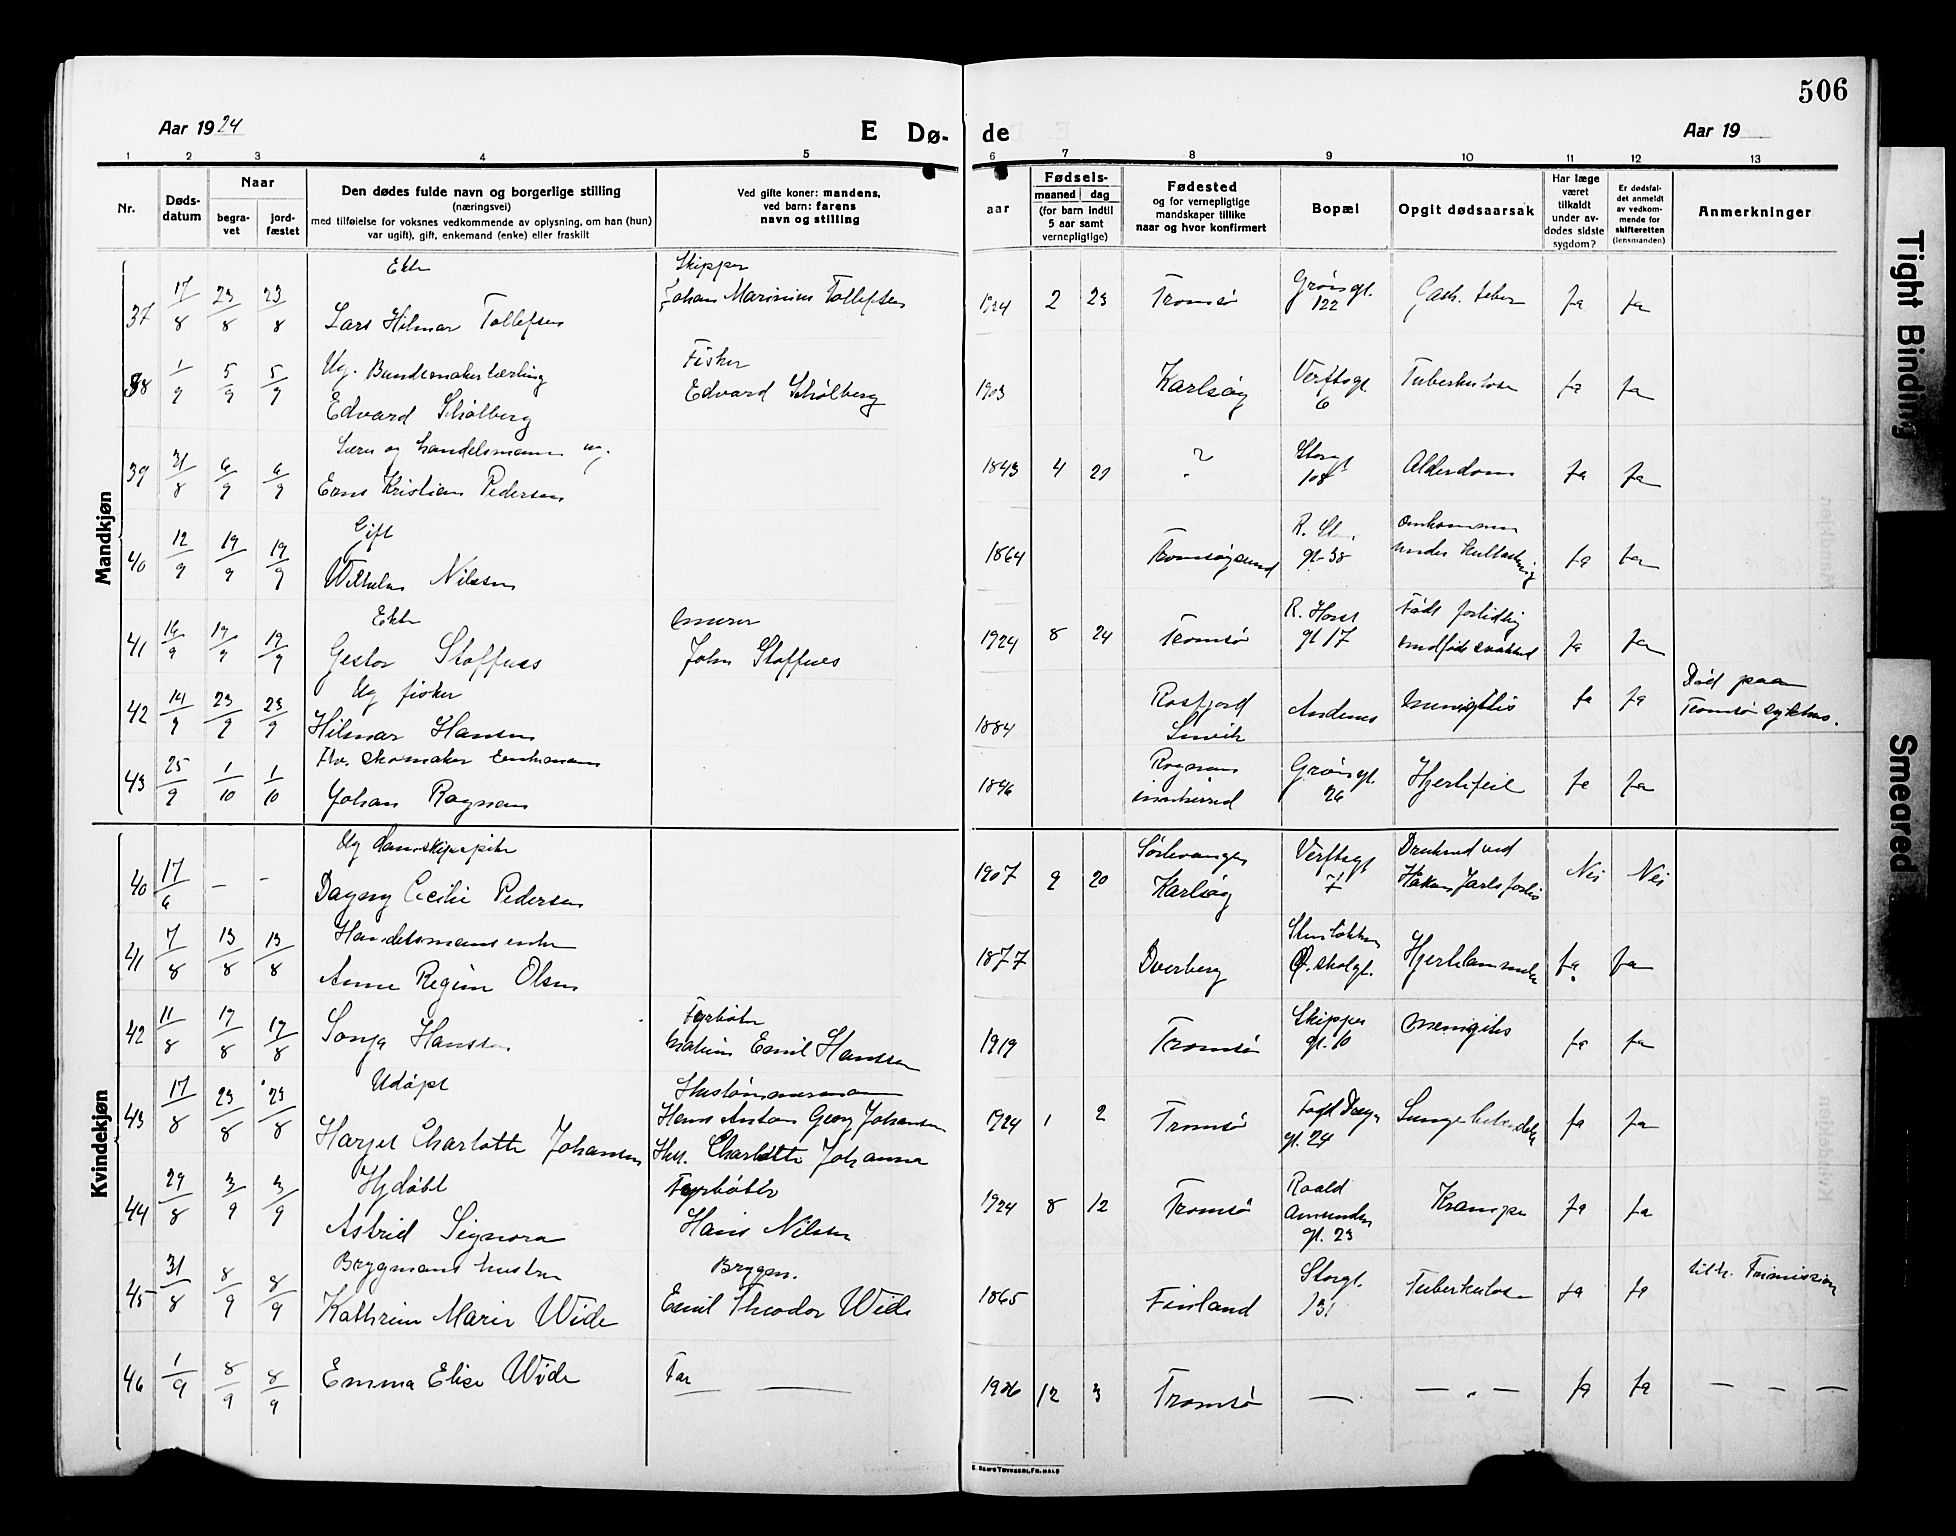 506
Aar 1924
E Dø-
de
Aar 19
1 2 3 4 5 6 7 8 9 10 11 12 13
Nr.
Døds-
datum
Naar
begra-
vet
jord-
fæstet
Den dødes fulde navn og borgerlige stilling
(næringsvei)
med tilføielse for voksnes vedkommende av oplysning, om han (hun)
var ugift), gift, enkemand (enke) eller fraskilt
Ved gifte koner: mandens,
ved barn: farens
navn og stilling
aar
Fødsels-
maaned dag
(for barn indtil
5 aar samt
vernepligtige)
Fødested
og for vernepligtige
mandskaper tillike
naar og hvor konfirmert
Bopæl
Opgit dødsaarsak
Har læge
været
tilkaldt
under av-
dødes sidste
sygdom?
Er dødsfal-
det anmeldt
av vedkom-
mende for
skifteretten
(lensmanden)
Anmerkninger
Mandkjøn
Ekte Skipper
37 17/8 23/8 23/8 Lars Hilmar Tollefsen Johan Marinius Tollefsen 1924 2 23 Tromsø Grønsgt. 122 ja ja
Ug. Buntmakerlærling Fisker
38 1/9 5/9 5/9 Edvard Schølberg Edvard Schølberg 1903 Karlsøy Verftsgt. 6 Tuberkulose ja ja
og handelsmann ug.
39 31/8 6/9 6/9 Kristian Pedersen 1843 4 ? Storgt 108 Alderdom ja ja
Gift
40 12/9 19/9 19/9 Wilhelm Nilsen 1864 Tromsøysund gt. 38 omkommen under ja ja
Ekte murer
41 16/9 19/9 19/9 John 1924 8 24 Tromsø R. Horst gt 17 Født fortidlig medfødt svakhed ja ja
Ug fisker
42 14/9 23/9 23/9 Hilmar Hansen 1884 Rosfjord Lenvik Andenes meningitis ja ja Død paa Tromsø sykhus.
Fhv. skomaker Enkemann
43 25/9 1/10 1/10 Johan Rognan Grønsgt. 26 Hjertefeil ja ja
Kvindekjøn
Ug
40 17/6 – – Dagny Cecilie Pedersen 1907 9 20 Karlsøy Verftsgt 7 Druknet ved Håkon Jarls forlis Nei Nei
Handelsmans enke
41 7/8 13/8 13/8 Anne Regine Olsen 1877 Dverberg skolgt. Hjertelammelse ja ja
Fyrbøter
42 11/8 19/8 19/8 Sonja Hansen Emil Hanssen 1919 Tromsø Skipper gt. 10 menigitis ja ja
Udøpt Hustømmermann
43 17/8 23/8 23/8 Harjet Charlotte Johansen Hans Anton Georg Johansen
Hus. Charlotte Johanna 1924 1 2 Tromsø gt. 24 ja ja
Hjdøbt Fyrbøter
44 29/8 3/9 3/9 Astrid Signora Hans Nilsen 1924 8 12 Tromsø Roald Amundsen gt. 23 Krampe ja ja
Bryggmans hustru Bryggm.
45 31/8 8/9 8/9 Kathrine Marie Wide Emil Theodor Wide 1865 Finland Storgt. 131 Tuberkulose ja ja tilh. Frimission
46 1/9 8/9 8/9 Emma Elise Wide Far — — 1906 12 3 Tromsø — — „ — ja ja — — —
E. SEM'S TRYKKERI, FR.HALD
Tight Binding
Smeared